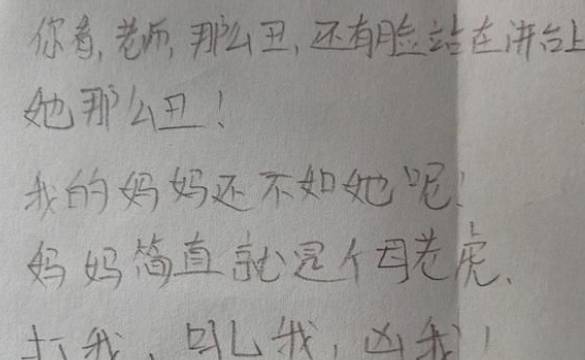 你看,老师,那么丑,还有脸站在讲台上
她那么丑!
我的妈妈还不如她呢!
妈妈简直就是个母老虎、
打我、吼我,凶我!